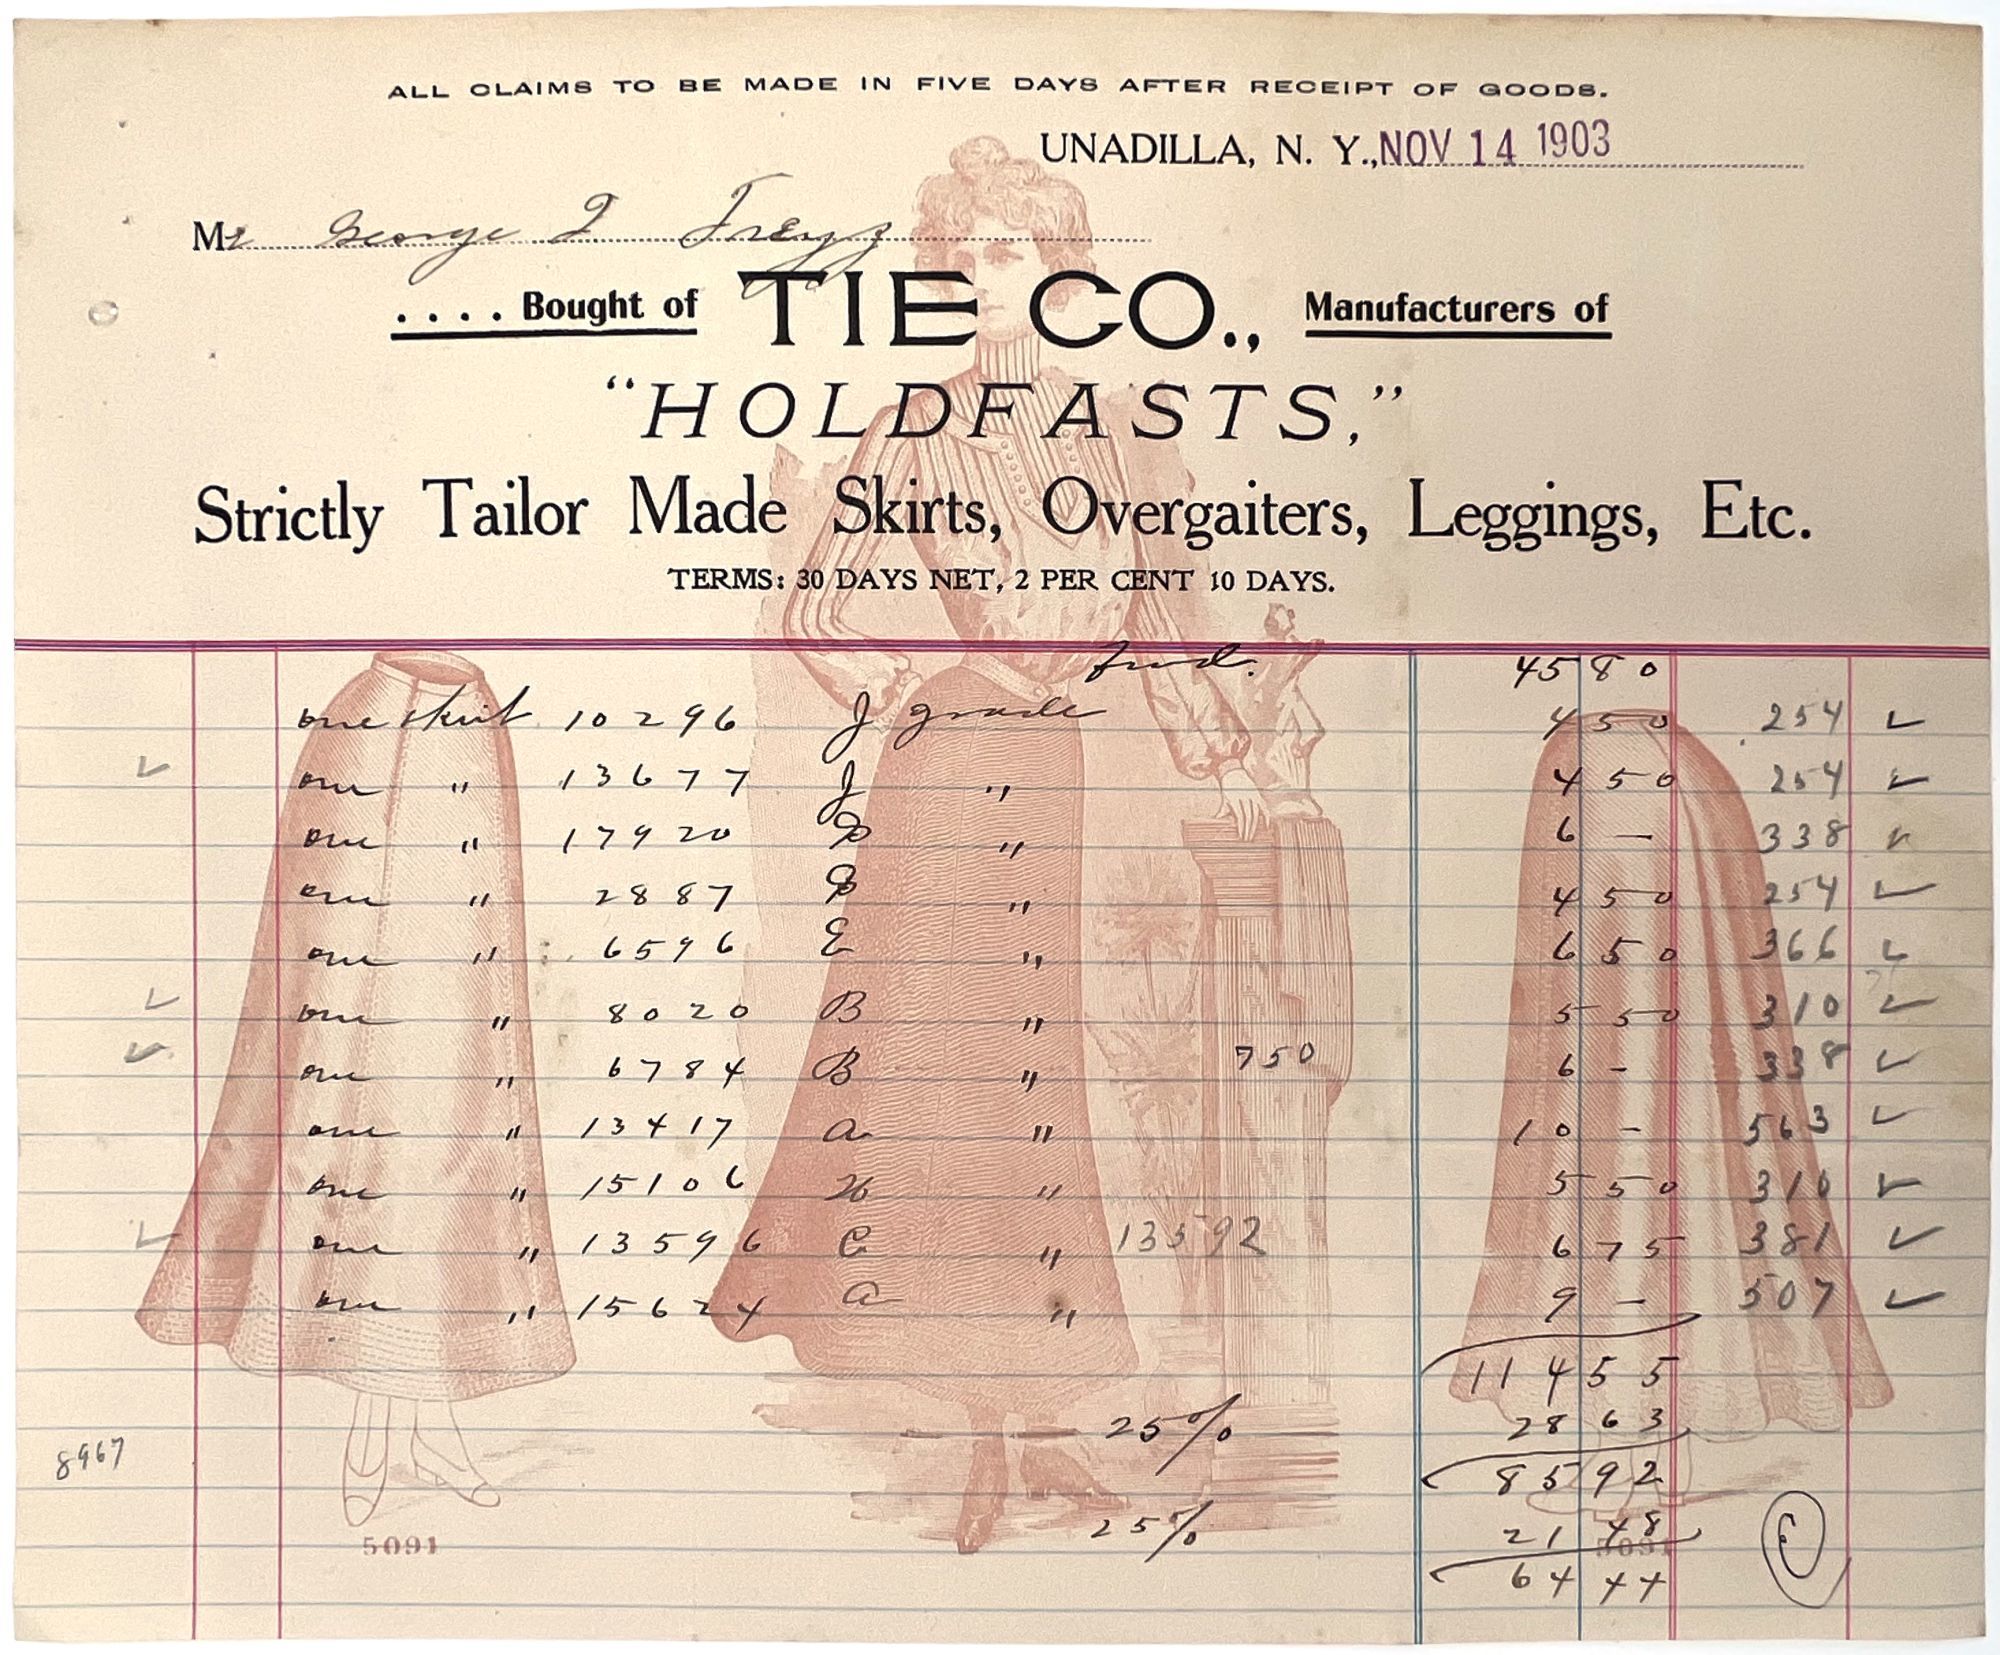 ALL CLAIMS TO BE MADE IN FIVE DAYS AFTER RECEIPT OF GOODS.
UNADILLA, N. Y., NOV 14 1903
Mr George
.... Bought of TIE CO., Manufacturers of
"HOLDFASTS,"
Strictly Tailor Made Skirts, Overgaiters, Leggings, Etc.
TERMS: 30 DAYS NET, 2 PER CENT 10 DAYS.
45 80
one skirt 10296 J grade 4 50 254 ✓
✓ one " 13677 J " 4 50 254 ✓
one " 17920 " 6 — 338 ✓
one " 2887 " 4 50 254 ✓
one " 6596 E " 6 50 366 ✓
✓ one " 8020 B " 5 50 310 ✓
✓ one " 6784 B " 750 6 - 338 ✓
one " 13417 a " 10 - 563 ✓
one " 15106 " 5 50 310 ✓
✓ one " 13596 C " 13592 6 75 381 ✓
one " 15624 a " 9 - 507 ✓
114 55
25% 28 63
8967 85 92
25% 21 48
5091 5091
64 44